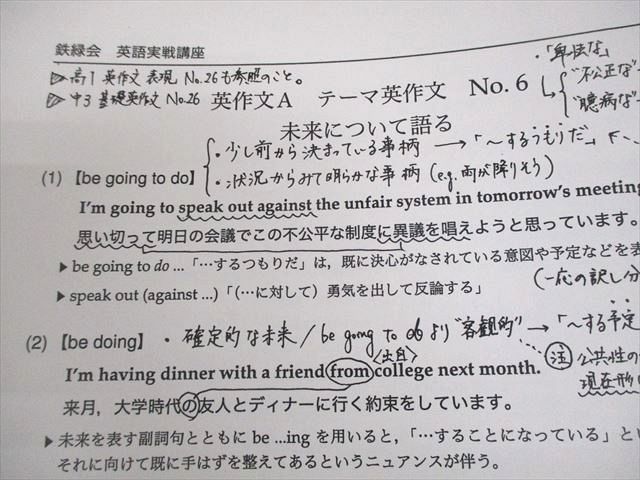 鉄緑会 英語実戦講座
▷高1 英作文 表現 No.26も参照のこと。
▷中3 基礎英作文 No.26
・「卑怯な」
"不公正な"
"臆病な"
英作文A テーマ英作文 No. 6
未来について語る
・少し前から決まっている事柄 → 「～するつもりだ」
・状況からみて明らかな事柄 (e.g. 雨が降りそう)
(1) 【be going to do】
I'm going to speak out against the unfair system in tomorrow's meeting
思い切って明日の会議でこの不公平な制度に異議を唱えようと思っています。
▶ be going to do ... 「…するつもりだ」は，既に決心がなされている意図や予定などを表
(一応の訳し分
▶ speak out (against ...) 「(…に対して) 勇気を出して反論する」
(2) 【be doing】 ・確定的な未来 / be going to do より "客観的" → 「～する予定
<出自>
注 公共性の
I'm having dinner with a friend from college next month.
現在形
来月，大学時代の友人とディナーに行く約束をしています。
▶ 未来を表す副詞句とともに be ...ing を用いると，「…することになっている」とい
それに向けて既に手はずを整えてあるというニュアンスが伴う。